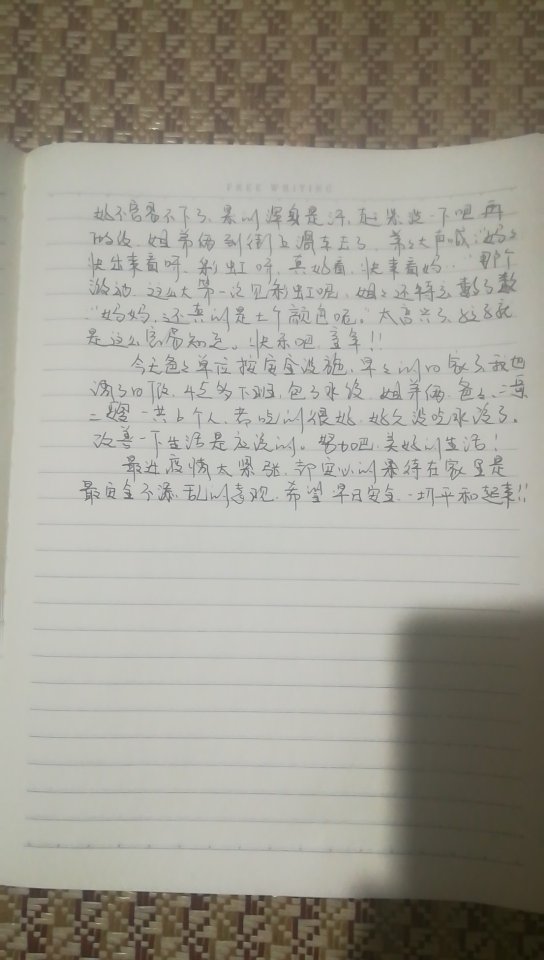 FREE WRITING
好不容易不下了，累的浑身是汗，赶紧洗一下吧 再
的后，姐弟俩到街上滑车去了，弟弟大声喊：“妈妈
快出来看呀，彩虹呀，真好看，快来看妈，”那个
激动，这么大第一次见彩虹呢，姐姐还特意数了数
“妈妈，还真的是七个颜色呢。”太高兴了，孩子就
是这么容易知足。快乐吧，童年！！
今天爸爸单位 安全设施，早早的回家了，我也
4点多下班，包了水饺，姐弟俩，爸爸、二
一共6个人，都吃的很好，好久没吃水饺了。
改善一下生活是应该的。努力吧，美好的生活！
最近疫情太紧张，都安心的呆待在家里是
最安全不添乱的表现，希望早日安全，一切平和起来！！